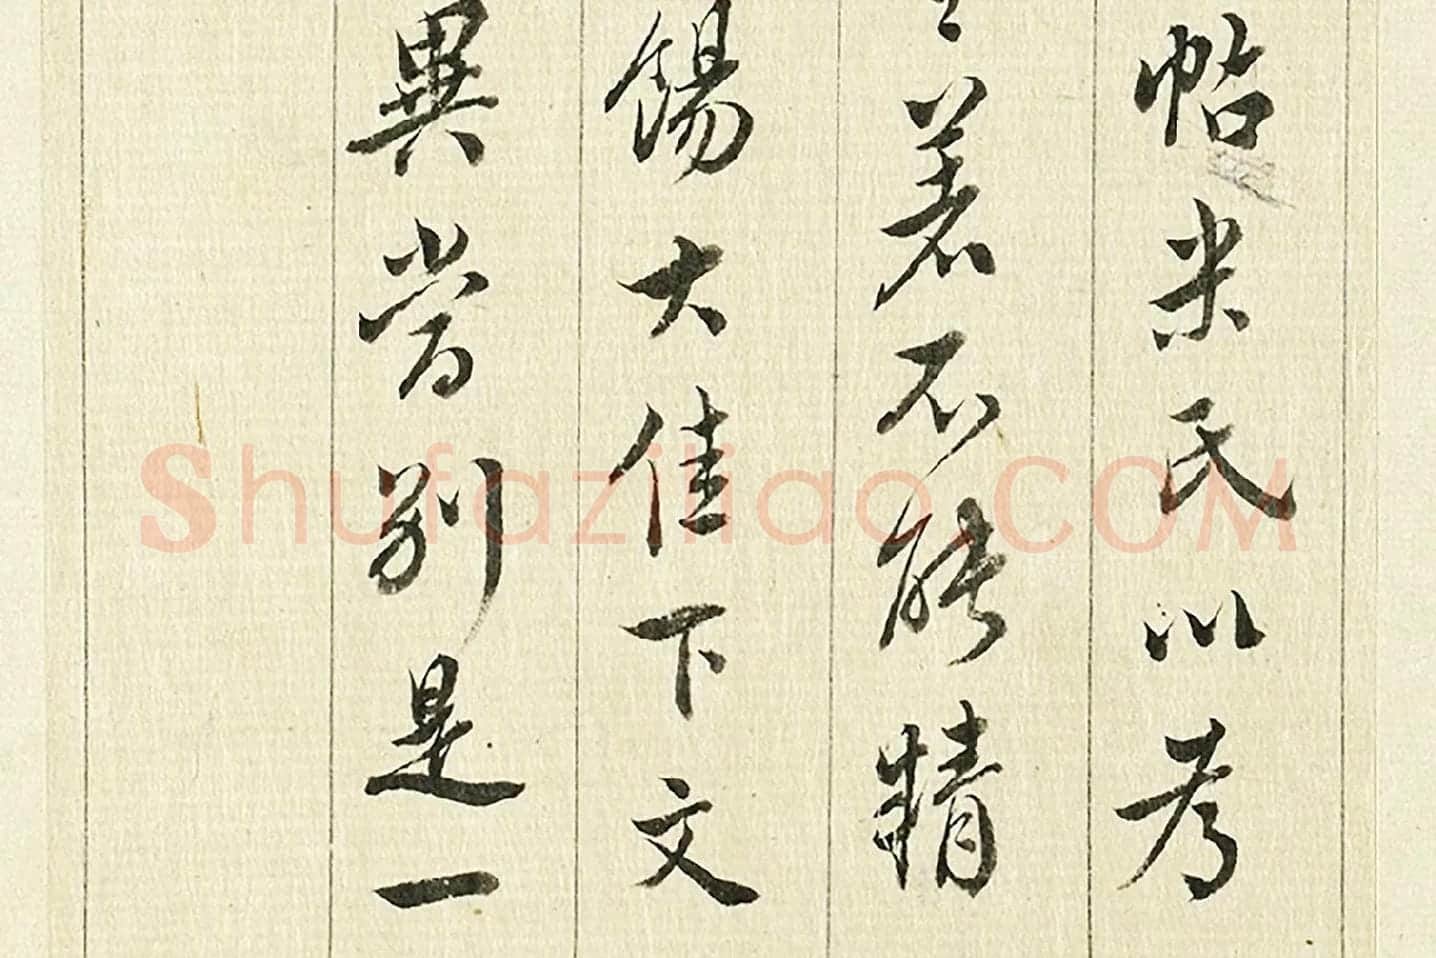 帖米氏以考
不能精
餳大佳下文
異當別是一
Shufaziliao.COM